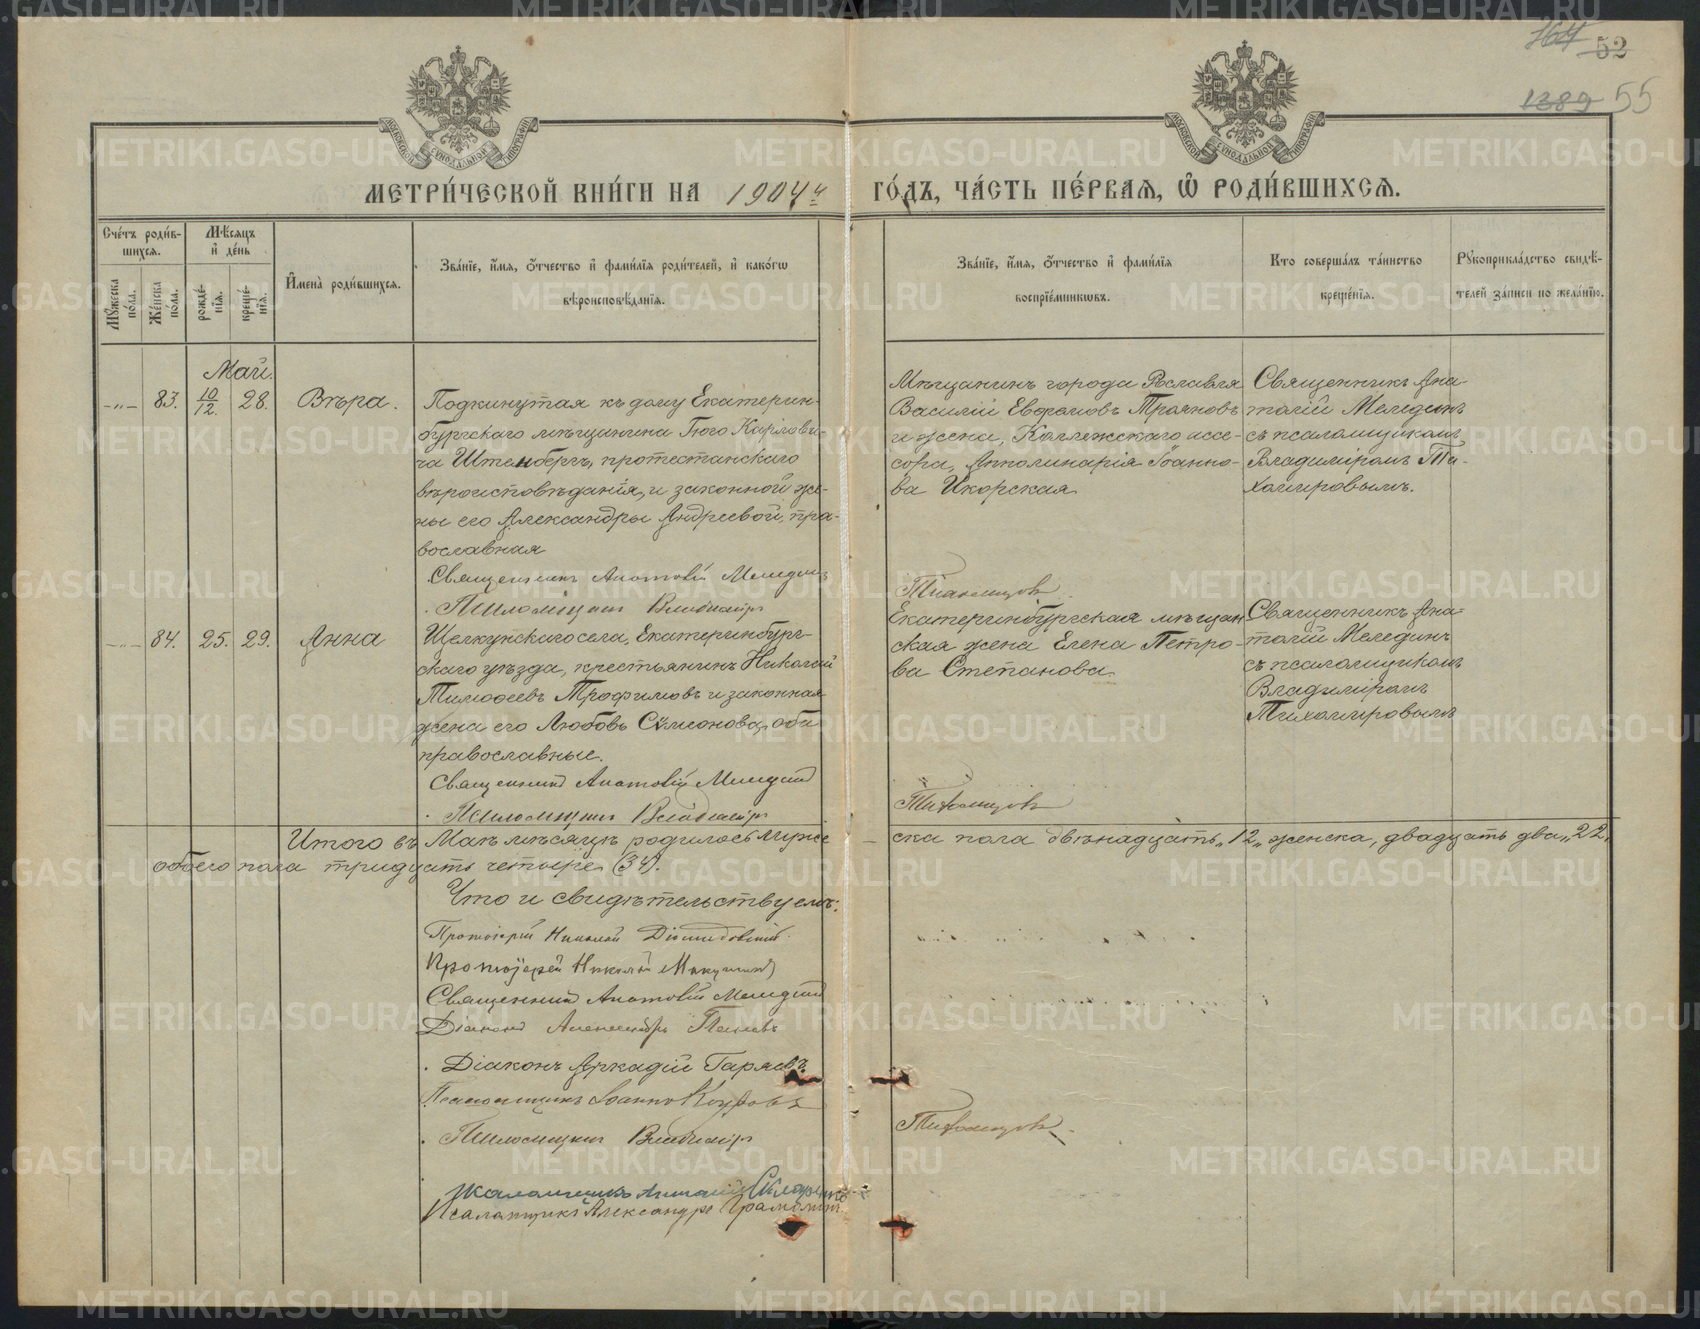 764 52
1389 55
МЕТРИ́ЧЕСКОЙ КНИ́ГИ НА 1904 г. ГО́ДЪ, ЧА́СТЬ ПЕ́РВАЯ, Ѡ҆ РОДИ́ВШИХСѦ.
Сче́тъ роди́вшихсѧ.
Мꙋ́жеска по́ла.
Же́нска по́ла.
Мѣ́сѧцъ и҆ де́нь
рожде́нїѧ.
креще́нїѧ.
И҆мена̀ роди́вшихсѧ.
Зва́нїе, и҆́мѧ, ѻ҆́тчество и҆ фами́лїѧ роди́телей, и҆ како́гѡ
вѣроисповѣ́данїѧ.
Зва́нїе, и҆́мѧ, ѻ҆́тчество и҆ фами́лїѧ
воспрїе́мникѡвъ.
Кто̀ соверша́лъ та́инство
креще́нїѧ.
Рꙋкоприкла́дство свидѣ́телей за́писи по жела́нїю.
Май.
-„- 83. 10/12. 28. Вѣра.
Подкинутая къ дому Екатерин-
бургскаго мѣщанина Гюго Карлови-
ча Штенбергъ, протестанскаго
вѣроисповѣданія, и законной же-
ны его Александры Андреевой, пра-
вославная
Священникъ Анатолій Мелединъ
Псаломщикъ Владиміръ Тихомировъ
Мѣщанинъ города Рославля
Василій Евфремовъ Трояновъ
и жена, Коллежскаго ассе-
сора, Апполинарія Іоанно-
ва Икорская
Священникъ Ана-
толій Мелединъ
съ псаломщикомъ
Владиміромъ Ти-
хомировымъ.
-„- 84. 25. 29. Анна
Щелкунскаго села, Екатеринбург-
скаго уѣзда, крестьянинъ Николай
Тимофеевъ Трофимовъ и законная
жена его Любовь Симонова, оба
православные.
Священникъ Анатолій Мелединъ
Псаломщикъ Владиміръ Тихомировъ
Екатеринбургская мѣщан-
ская жена Елена Петро-
ва Степанова
Священникъ Ана-
толій Мелединъ
съ псаломщикомъ
Владиміромъ
Тихомировымъ
Итого въ Маѣ мѣсяцѣ родилось муже-ска пола двѣнадцать „12„ женска, двадцать два „22„
обоего пола тридцать четыре (34).
Что и свидѣтельствуемъ:
Протоіерей Николай Діомидовскій
Протоіерей Николай
Священникъ Анатолій Мелединъ
Діаконъ Александръ
Діаконъ Аркадій Гаряевъ
Псаломщикъ Іоаннъ
Псаломщикъ Владиміръ Тихомировъ
Псаломщикъ
Псаломщикъ Александръ
METRIKI.GASO-URAL.RU